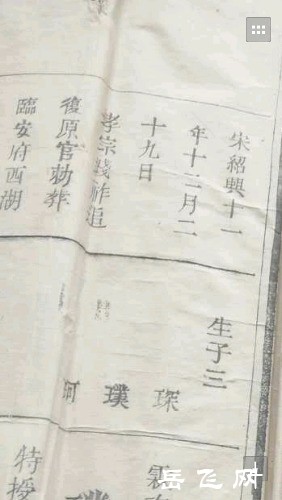 宋紹興十一
年十二月二
十九日
孝宗踐祚追
復原官勅葬
臨安府西湖
生子三
琛
璞
珂
霖
特授
岳飞网